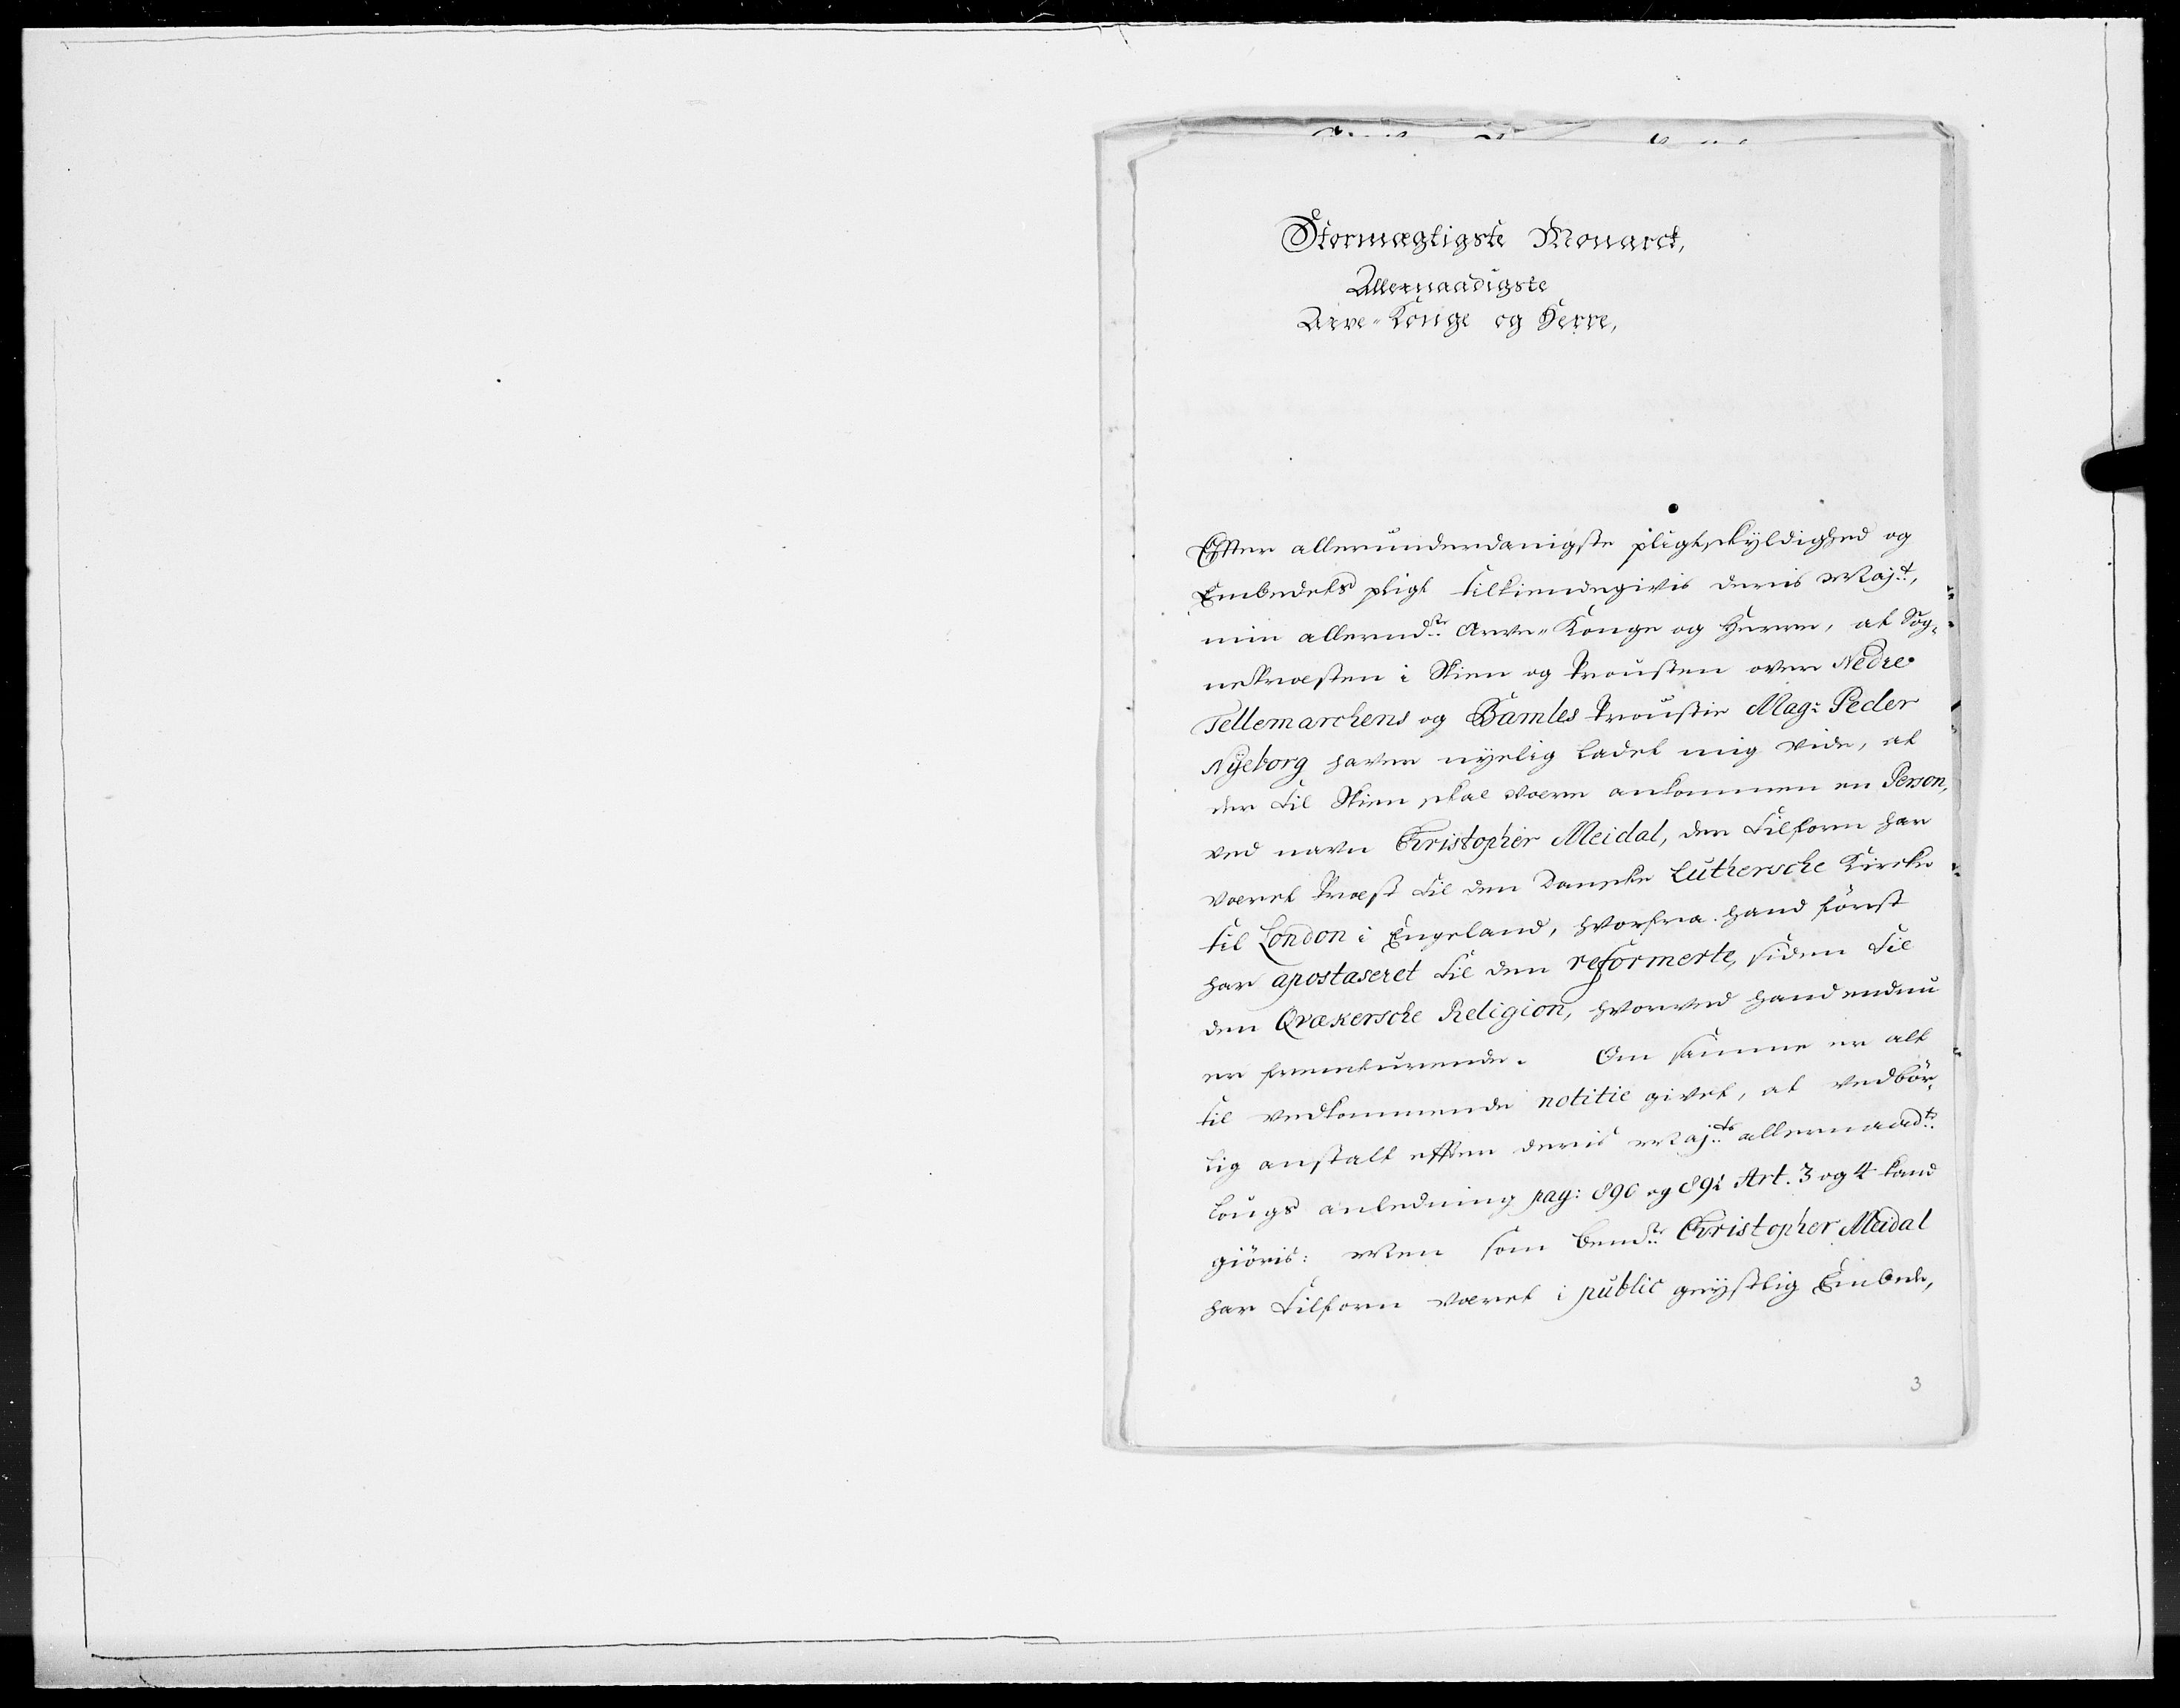 Stormægtigste Monarck,
Allernaadigste
Arve-Konge og Herre,
Effter allerunderdanigste pligtskyldighed og
Embedets pligt tilkiendegivis deris Maj:t,
min allernd:ste Arve-Konge og Herre, at Sog-
nepræsten i Skien og Prousten over Nedre
Tellemarchens og Bamles Proustie Mag: Peder
Nÿeborg haver nyelig ladet mig vide, at
der til Skien skal være ankommen en Person,
ved navn Christopher Meidal, der tilforn har
været Præst til den Danske Luthersche Kircke
til London i Engeland, hvorfra hand först
har apostaseret til den reformerte, siden til
den Qvækersche Religion, hvorved hand endnu
er fremturende. Om samme er alt
til vedkommende notitie givet, at vedbör-
lig anstalt effter deris Maj:ts allernaad:te
Lougs anledning pag: 890 og 891 Art. 3 og 4 kand
giöris: Men som bem:te Christopher Meidal
har tilforn været i public geystlig Embede,
3